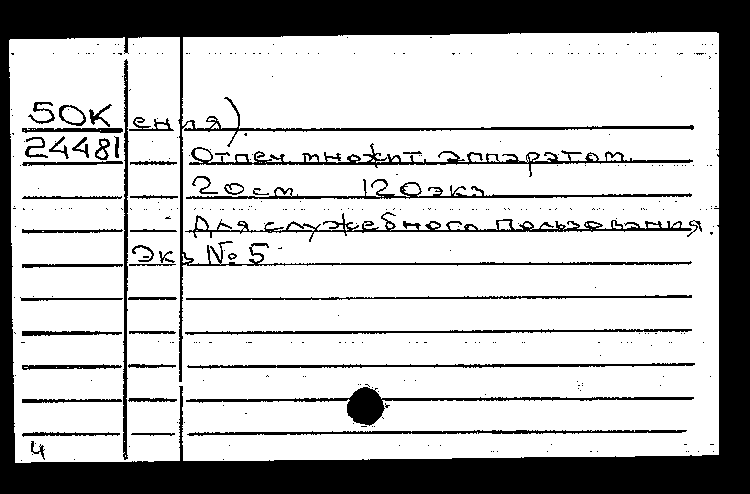 50К ения).
24481 Отпеч множит. аппаратом.
20см 120экз
Для служебного пользования.
Экз № 5
4